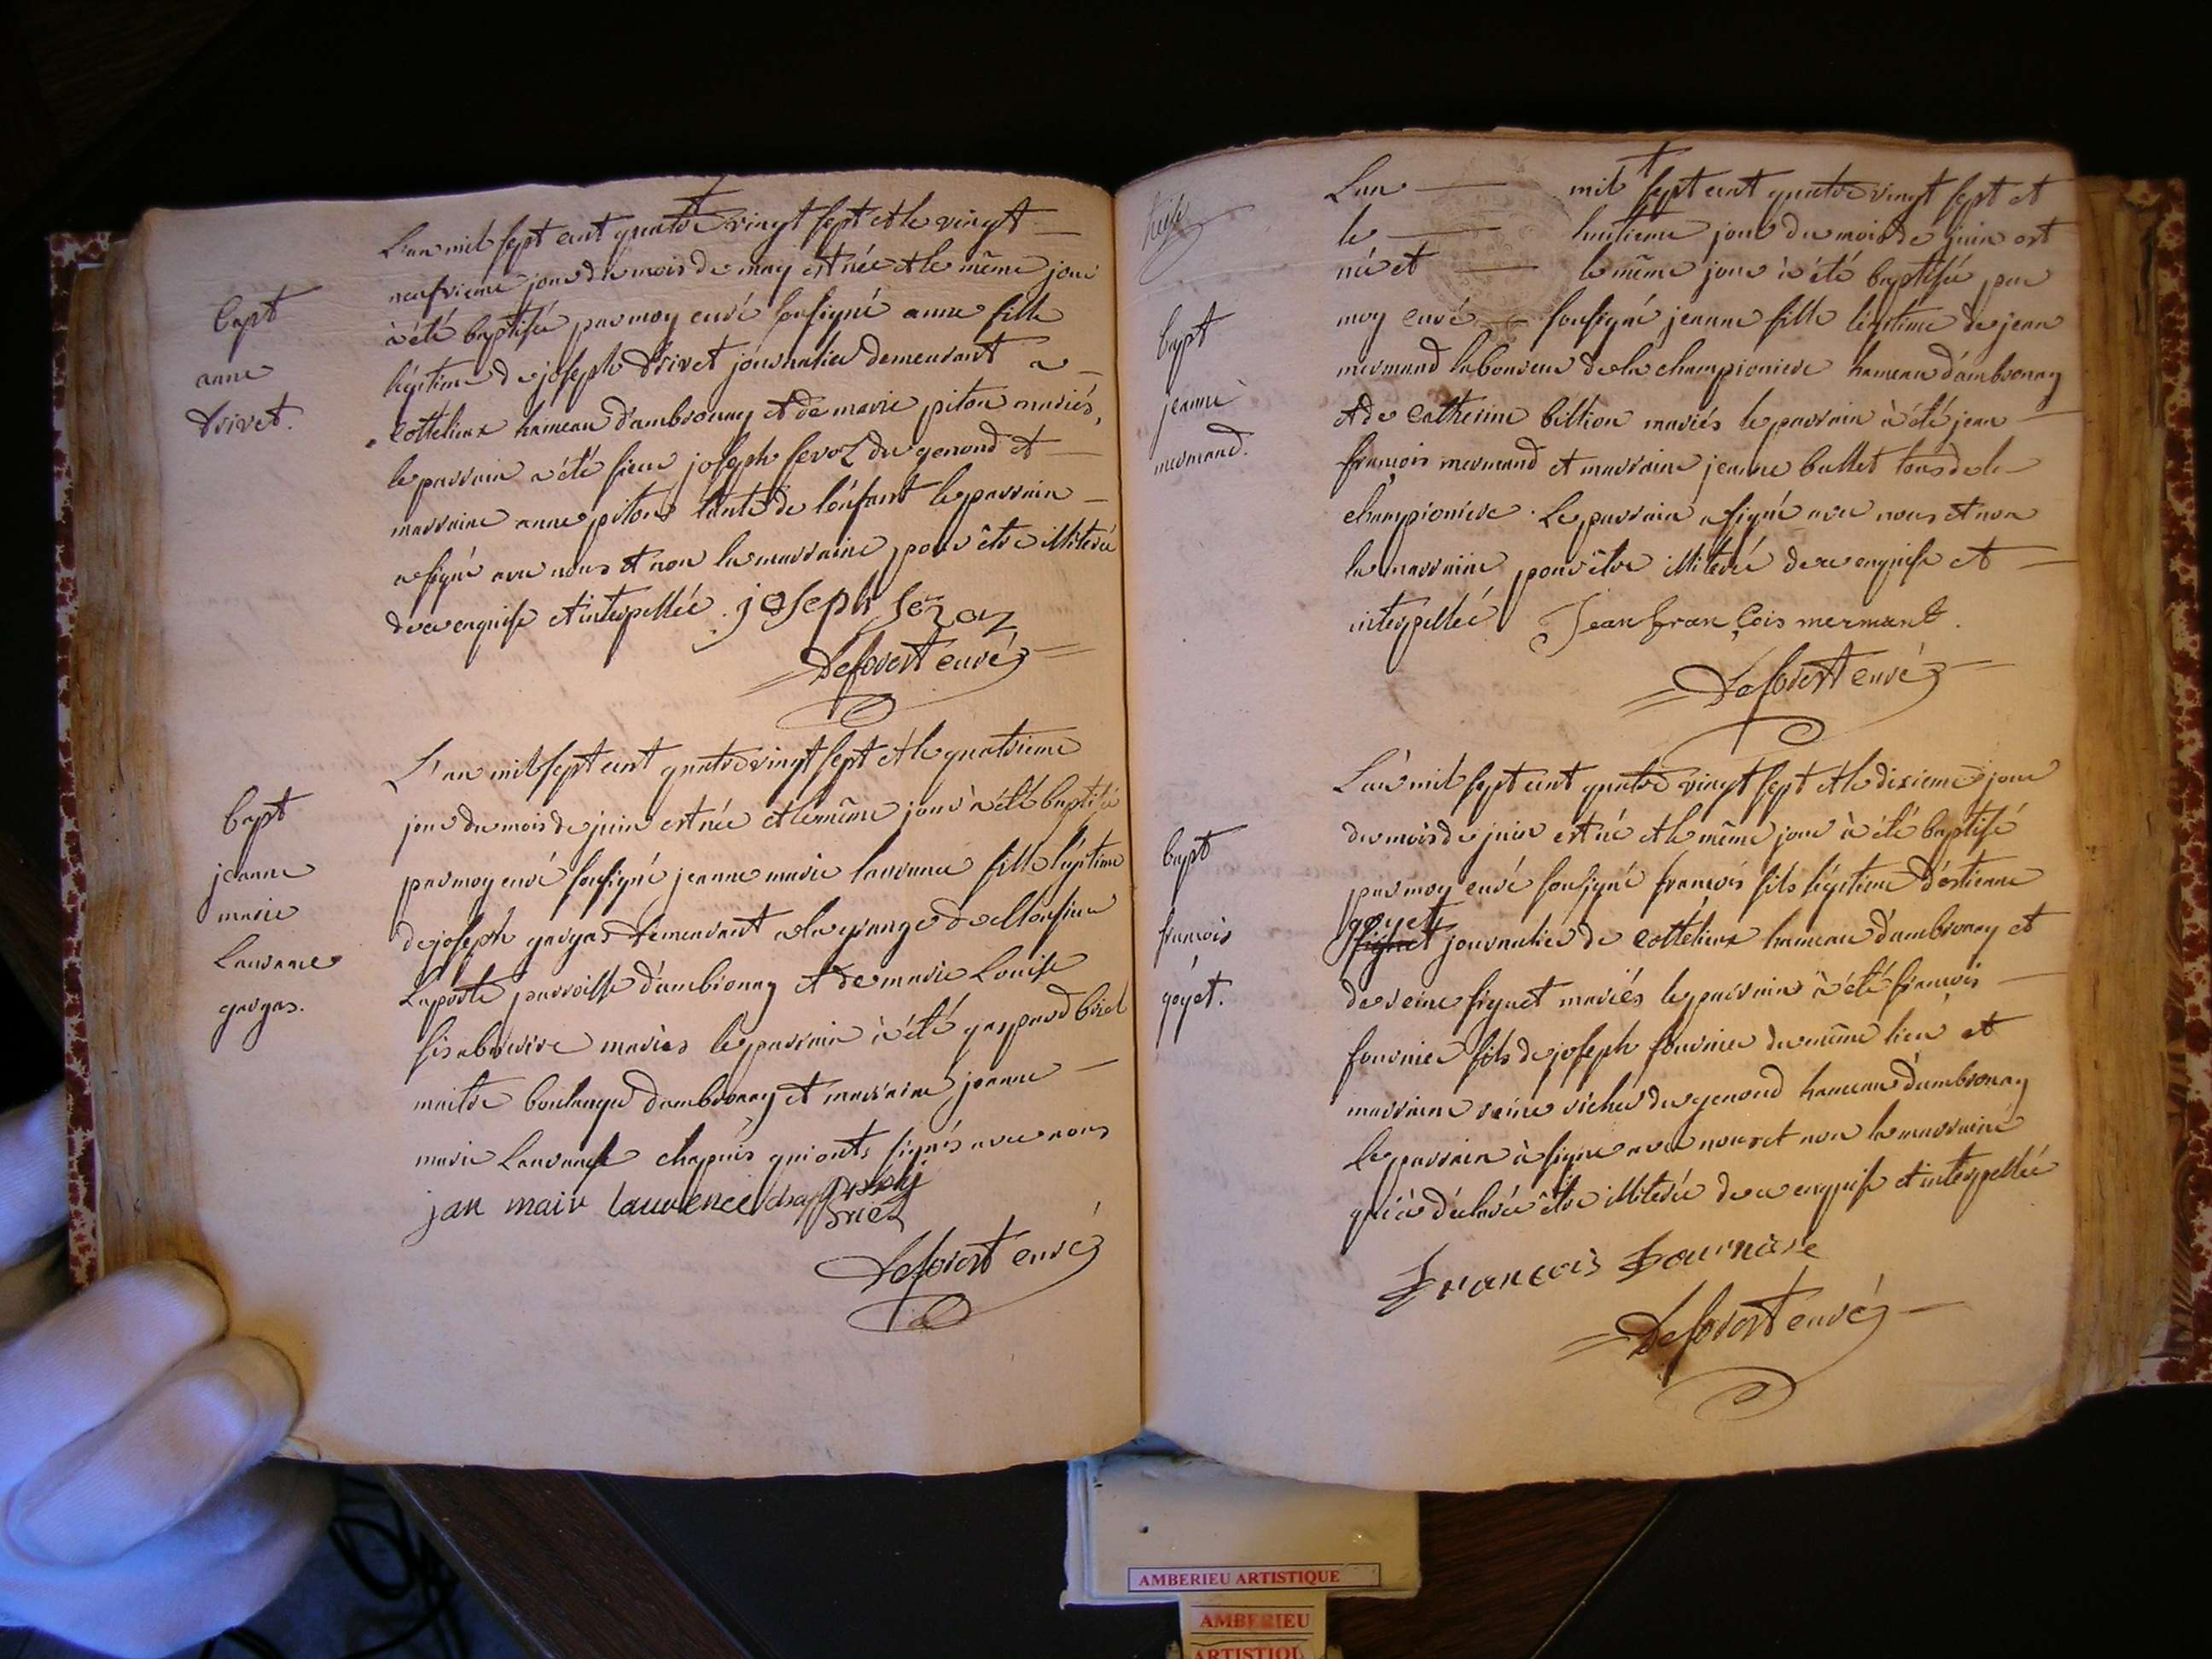 L'an mil sept cent quatre vingt sept et le vingt
neufvieme jour du mois de may est née et le même jour
à été baptisée par moy curé sousigné anne fille
légitime de joseph Drivet journalier demeurant a
cottelieux hameau d'ambronay et de marie piton mariés,
le parrain a été sieur joseph seroz du genoud et
marraine anne piton tante de l'enfant le parrain
a signé avec nous et non la marraine pour être illiterée
de ce enquise et interpellée. joseph Seroz
Deforest curé
bapt
anne
Drivet.
L'an mil sept cent quatre vingt sept et le quatrieme
jour du mois de juin est née et le même jour à été baptisée
par moy curé sousigné jeanne marie laurance fille légitime
de joseph gargas demeurant a la grange de Monsieur
Laporte parroisse d'ambronay et de marie Louise
mariés le parrain à été gaspard briel
maitre boulanger d'ambronay et marraine jeanne
marie Laurance chapuis qui onts signés avec nous
jan mair laurence
Deforest curé
bapt
jeanne
marie
Laurance
gargas.
L'an mil sept cent quatre vingt sept et
le huitieme jour du mois de juin est
née et le même jour à été baptisée par
moy curé sousigné jeanne fille légitime de jean
mermand laboureur de la championiere hameau d'ambronay
et de Catherine billion mariés le parrain à été jean
françois mermand et marraine jeanne ballet tous de la
championiere. Le parrain a signé avec nous et non
la marraine pour être illiterée de ce enquise et
interpellée Jean françois mermant.
Deforest curé
bapt
jeanne
mermand.
L'an mil sept cent quatre vingt sept et le dixieme jour
du mois de juin est né et le même jour à été baptisé
par moy curé sousigné françois fils légitime d'estienne
goyet
figuet journalier de cottelieux hameau d'ambronay et
de reine figuet mariés le parrain à été françois
fournier fils de joseph fournier du même lieu et
marraine reine richer du genoud hameau d'ambronay
le parrain à signé avec nous et non la marraine
qui à déclarée être illiterée de ce enquise et interpellée
François Fourniere
Deforest curé
bapt
françois
goyet.
AMBERIEU ARTISTIQUE
AMBERIEU
ARTISTIQU